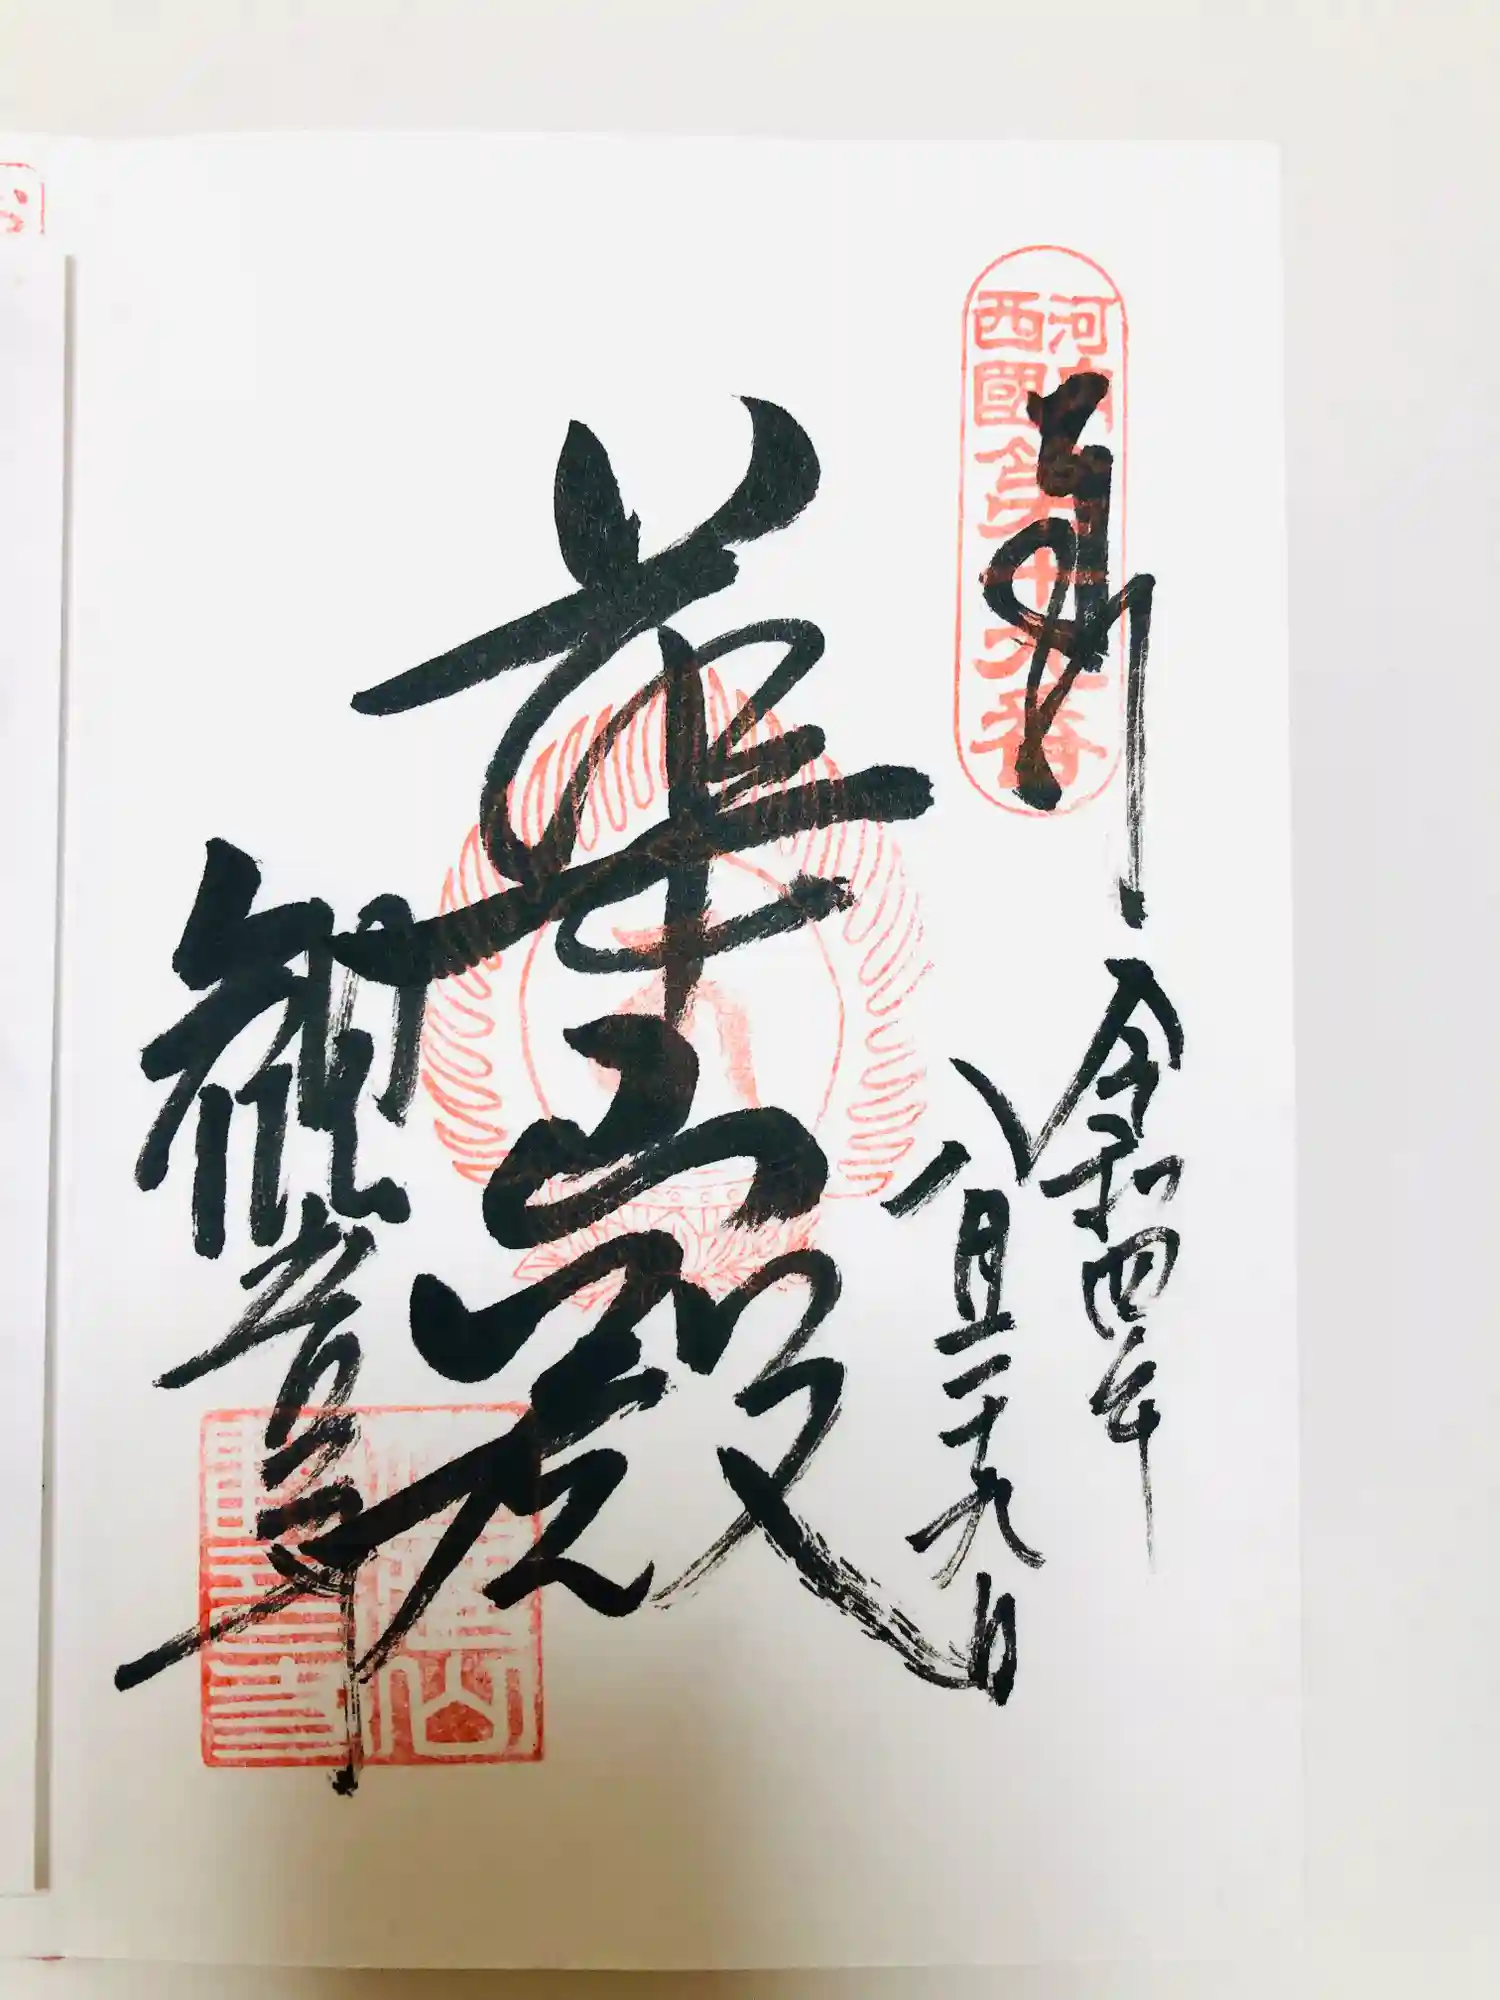 河内
西國
第十六番
奉拝
令和四年
八月二十九日
華
殿
観音寺